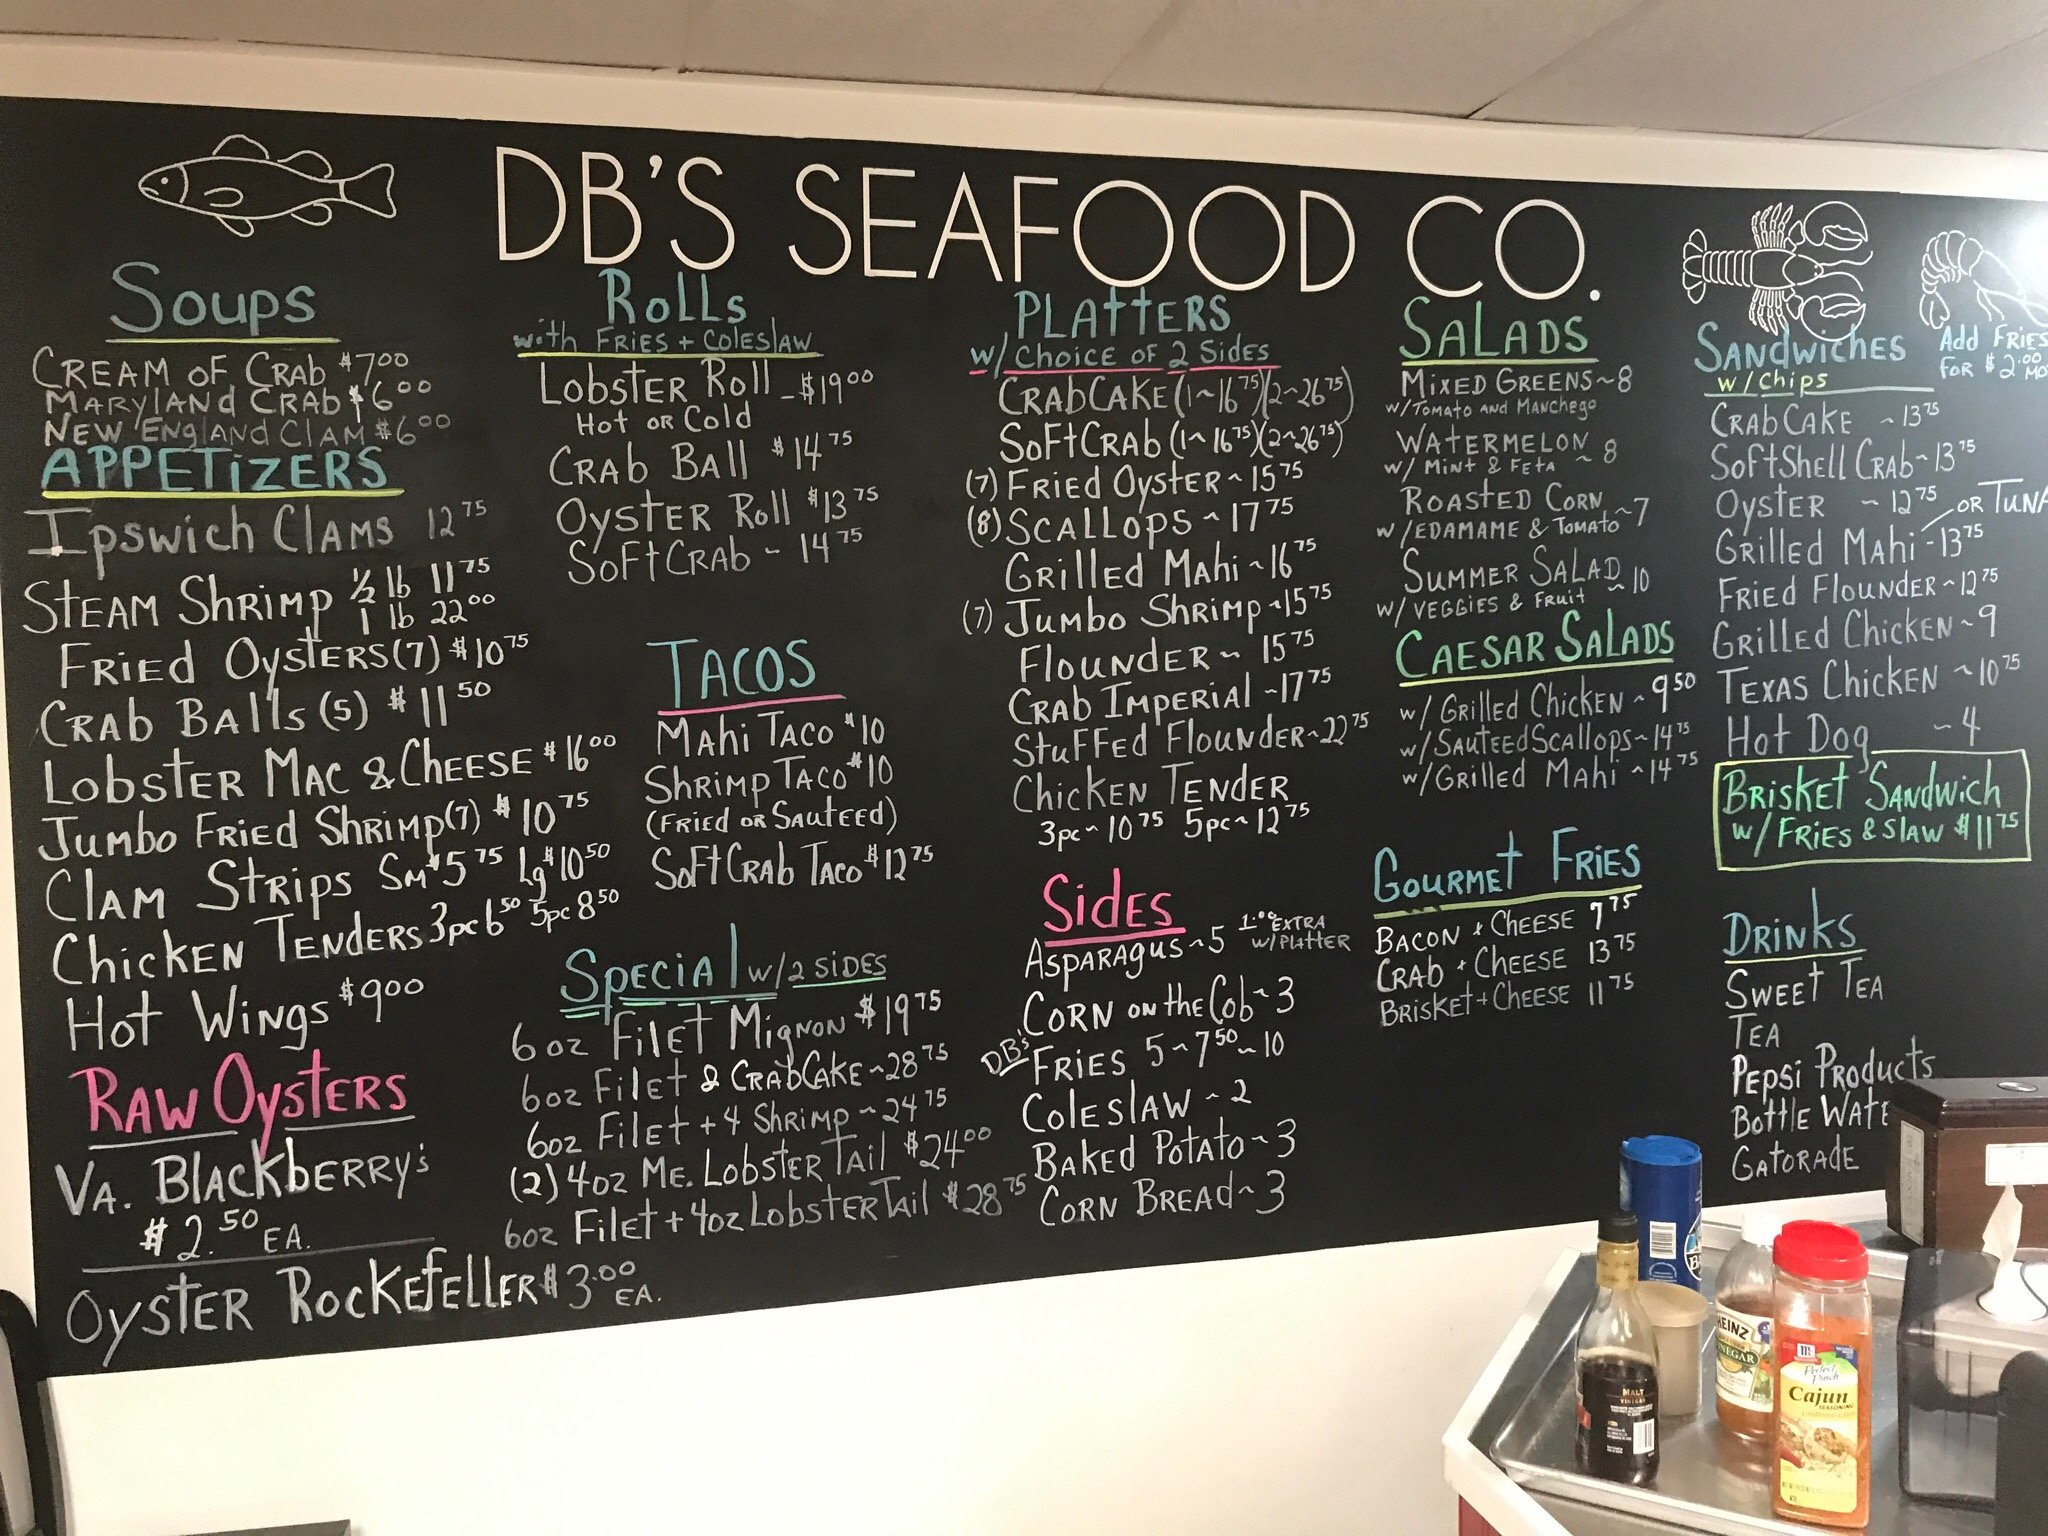 DB'S SEAFOOD CO.
Soups
CREAM OF CRAB $7.00
MARYLAND CRAB $6.00
NEW ENGLAND CLAM $6.00
APPETIZERS
Ipswich CLAMS 12 75
STEAM Shrimp 1/2 lb 11 75
1 lb 22 00
FRIED OYSTERS (7) $10 75
CRAB BAlls (5) $11 50
LOBSTER MAC & CHEESE $16 00
JUMBO FRIED Shrimp (7) $10 75
CLAM STRIPS Sm $5 75 Lg $10 50
Chicken TENDERS 3pc 6 50 5pc 8 50
Hot Wings $9 00
RAW OYSTERS
VA. BLACKBERRY's
$2.50 EA.
OYSTER ROCKEFELLER $3.00 EA.
ROLLS
with FRIES + COLESLAW
LOBSTER ROLL - $19 00
HOT OR COLD
CRAB BALL $14 75
OYSTER ROLL $13 75
SOFT CRAB ~ 14 75
TACOS
MAHI TACO $10
SHRIMP TACO $10
(FRIED OR SAUTEED)
SOFT CRAB TACO $12 75
Special w/ 2 SIDES
6 oz FILET MIGNON $19 75
6oz FILET & CRAB CAKE ~ 28 75
6oz FILET + 4 Shrimp ~ 24 75
(2) 4oz ME. LOBSTER TAIL $24 00
6oz FILET + 4oz LOBSTER TAIL $28 75
PLATTERS
w/ CHOICE OF 2 SIDES
CRABCAKE (1 ~ 16 75) (2 ~ 26 75)
SOFT CRAB (1 ~ 16 75) (2 ~ 26 75)
(7) FRIED OYSTER ~ 15 75
(8) SCALLOPS ~ 17 75
GRILLED MAHI ~ 16 75
(7) JUMBO SHRIMP ~ 15 75
FLOUNDER ~ 15 75
CRAB IMPERIAL ~ 17 75
STUFFED FLOUNDER ~ 22 75
CHICKEN TENDER
3pc ~ 10 75 5pc ~ 12 75
Sides
ASPARAGUS ~ 5 1.00 EXTRA w/ PLATTER
CORN ON THE COB ~ 3
DB's FRIES 5 ~ 7 50 ~ 10
COLESLAW ~ 2
BAKED POTATO ~ 3
CORN BREAD ~ 3
SALADS
MIXED GREENS ~ 8
w/ TOMATO AND MANCHEGO
WATERMELON
w/ MINT & FETA ~ 8
ROASTED CORN
w/ EDAMAME & TOMATO ~ 7
SUMMER SALAD
w/ VEGGIES & FRUIT ~ 10
CAESAR SALADS
w/ GRILLED CHICKEN ~ 9 50
w/ SAUTEED SCALLOPS ~ 14 75
w/ GRILLED MAHI ~ 14 75
GOURMET FRIES
BACON + CHEESE 7 75
CRAB + CHEESE 13 75
BRISKET + CHEESE 11 75
SANDWICHES
w/ Chips
ADD FRIES
FOR $2.00
CRAB CAKE ~ 13 75
SOFTSHELL CRAB ~ 13 75
OYSTER ~ 12 75
GRILLED MAHI - 13 75 OR TUNA
FRIED FLOUNDER ~ 12 75
GRILLED CHICKEN ~ 9
TEXAS CHICKEN ~ 10 75
HOT DOG ~ 4
BRISKET SANDWICH
w/ FRIES & SLAW $11 75
DRINKS
SWEET TEA
TEA
PEPSI PRODUCTS
BOTTLE WATE
GATORADE
MALT
VINEGAR
HEINZ
VINEGAR
Perfect Pinch
Cajun
SEASONING